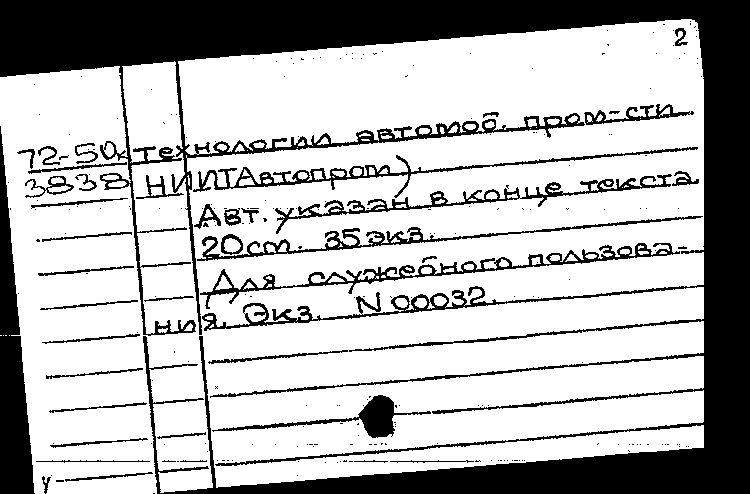 2
72-50к технологии автомоб. пром-сти
3838 НИИТАвтопром).
Авт. указан в конце текста.
20cm. 35экз.
Для служебного пользова-
ния. Экз. N 00032.
у